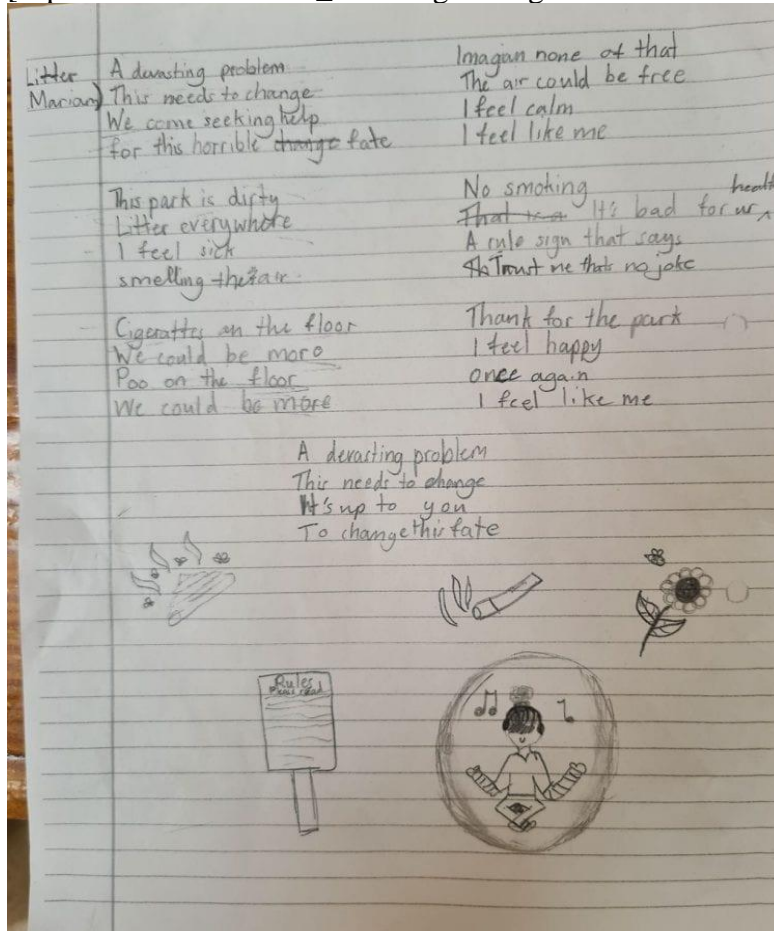 Litter
Marian)
A devasting problem
This needs to change
We come seeking help
for this horrible change fate
This park is dirty
Litter everywhere
I feel sick
smelling the air
Cigerattes on the floor
We could be more
Poo on the floor
We could be more
Imagan none of that
The air could be free
I feel calm
I feel like me
No smoking
That is a It's bad for ur health
A rule sign that says
Trust me thats no joke
Thank for the park
I feel happy
once again
I feel like me
A devasting problem
This needs to change
It's up to you
To change this fate
Rules